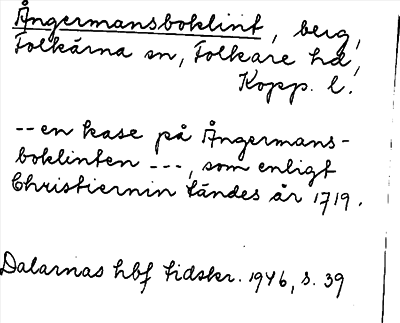 Ångermansboklint, berg,
Folkärna sn, Folkare hd,
Kopp. l.
--en kase på Ångermans-
boklinten ---, som enligt
Christiernin tändes år 1719.
Dalarnas hbf tidskr. 1946, s. 39